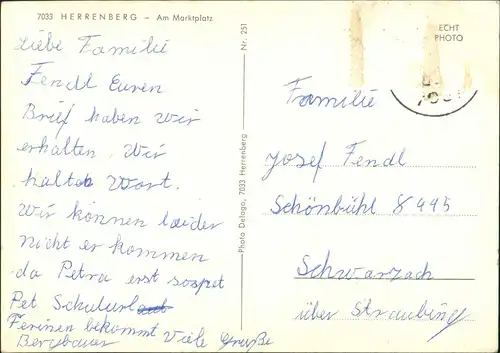 7033 HERRENBERG – Am Marktplatz
Liebe Familie
Fendl Euren
Brief haben wir
erhalten. Wir
halten Wort.
Wir können leider
nicht er kommen
da Petra erst sospet
Pet Schulurlaub
Ferinen bekommt Viele Grüße
Bergbauer
Nr. 251
Photo Defago, 7033 Herrenberg
ECHT
PHOTO
Familie
Josef Fendl
Schönbühl 8445
Schwarzach
über Straubing